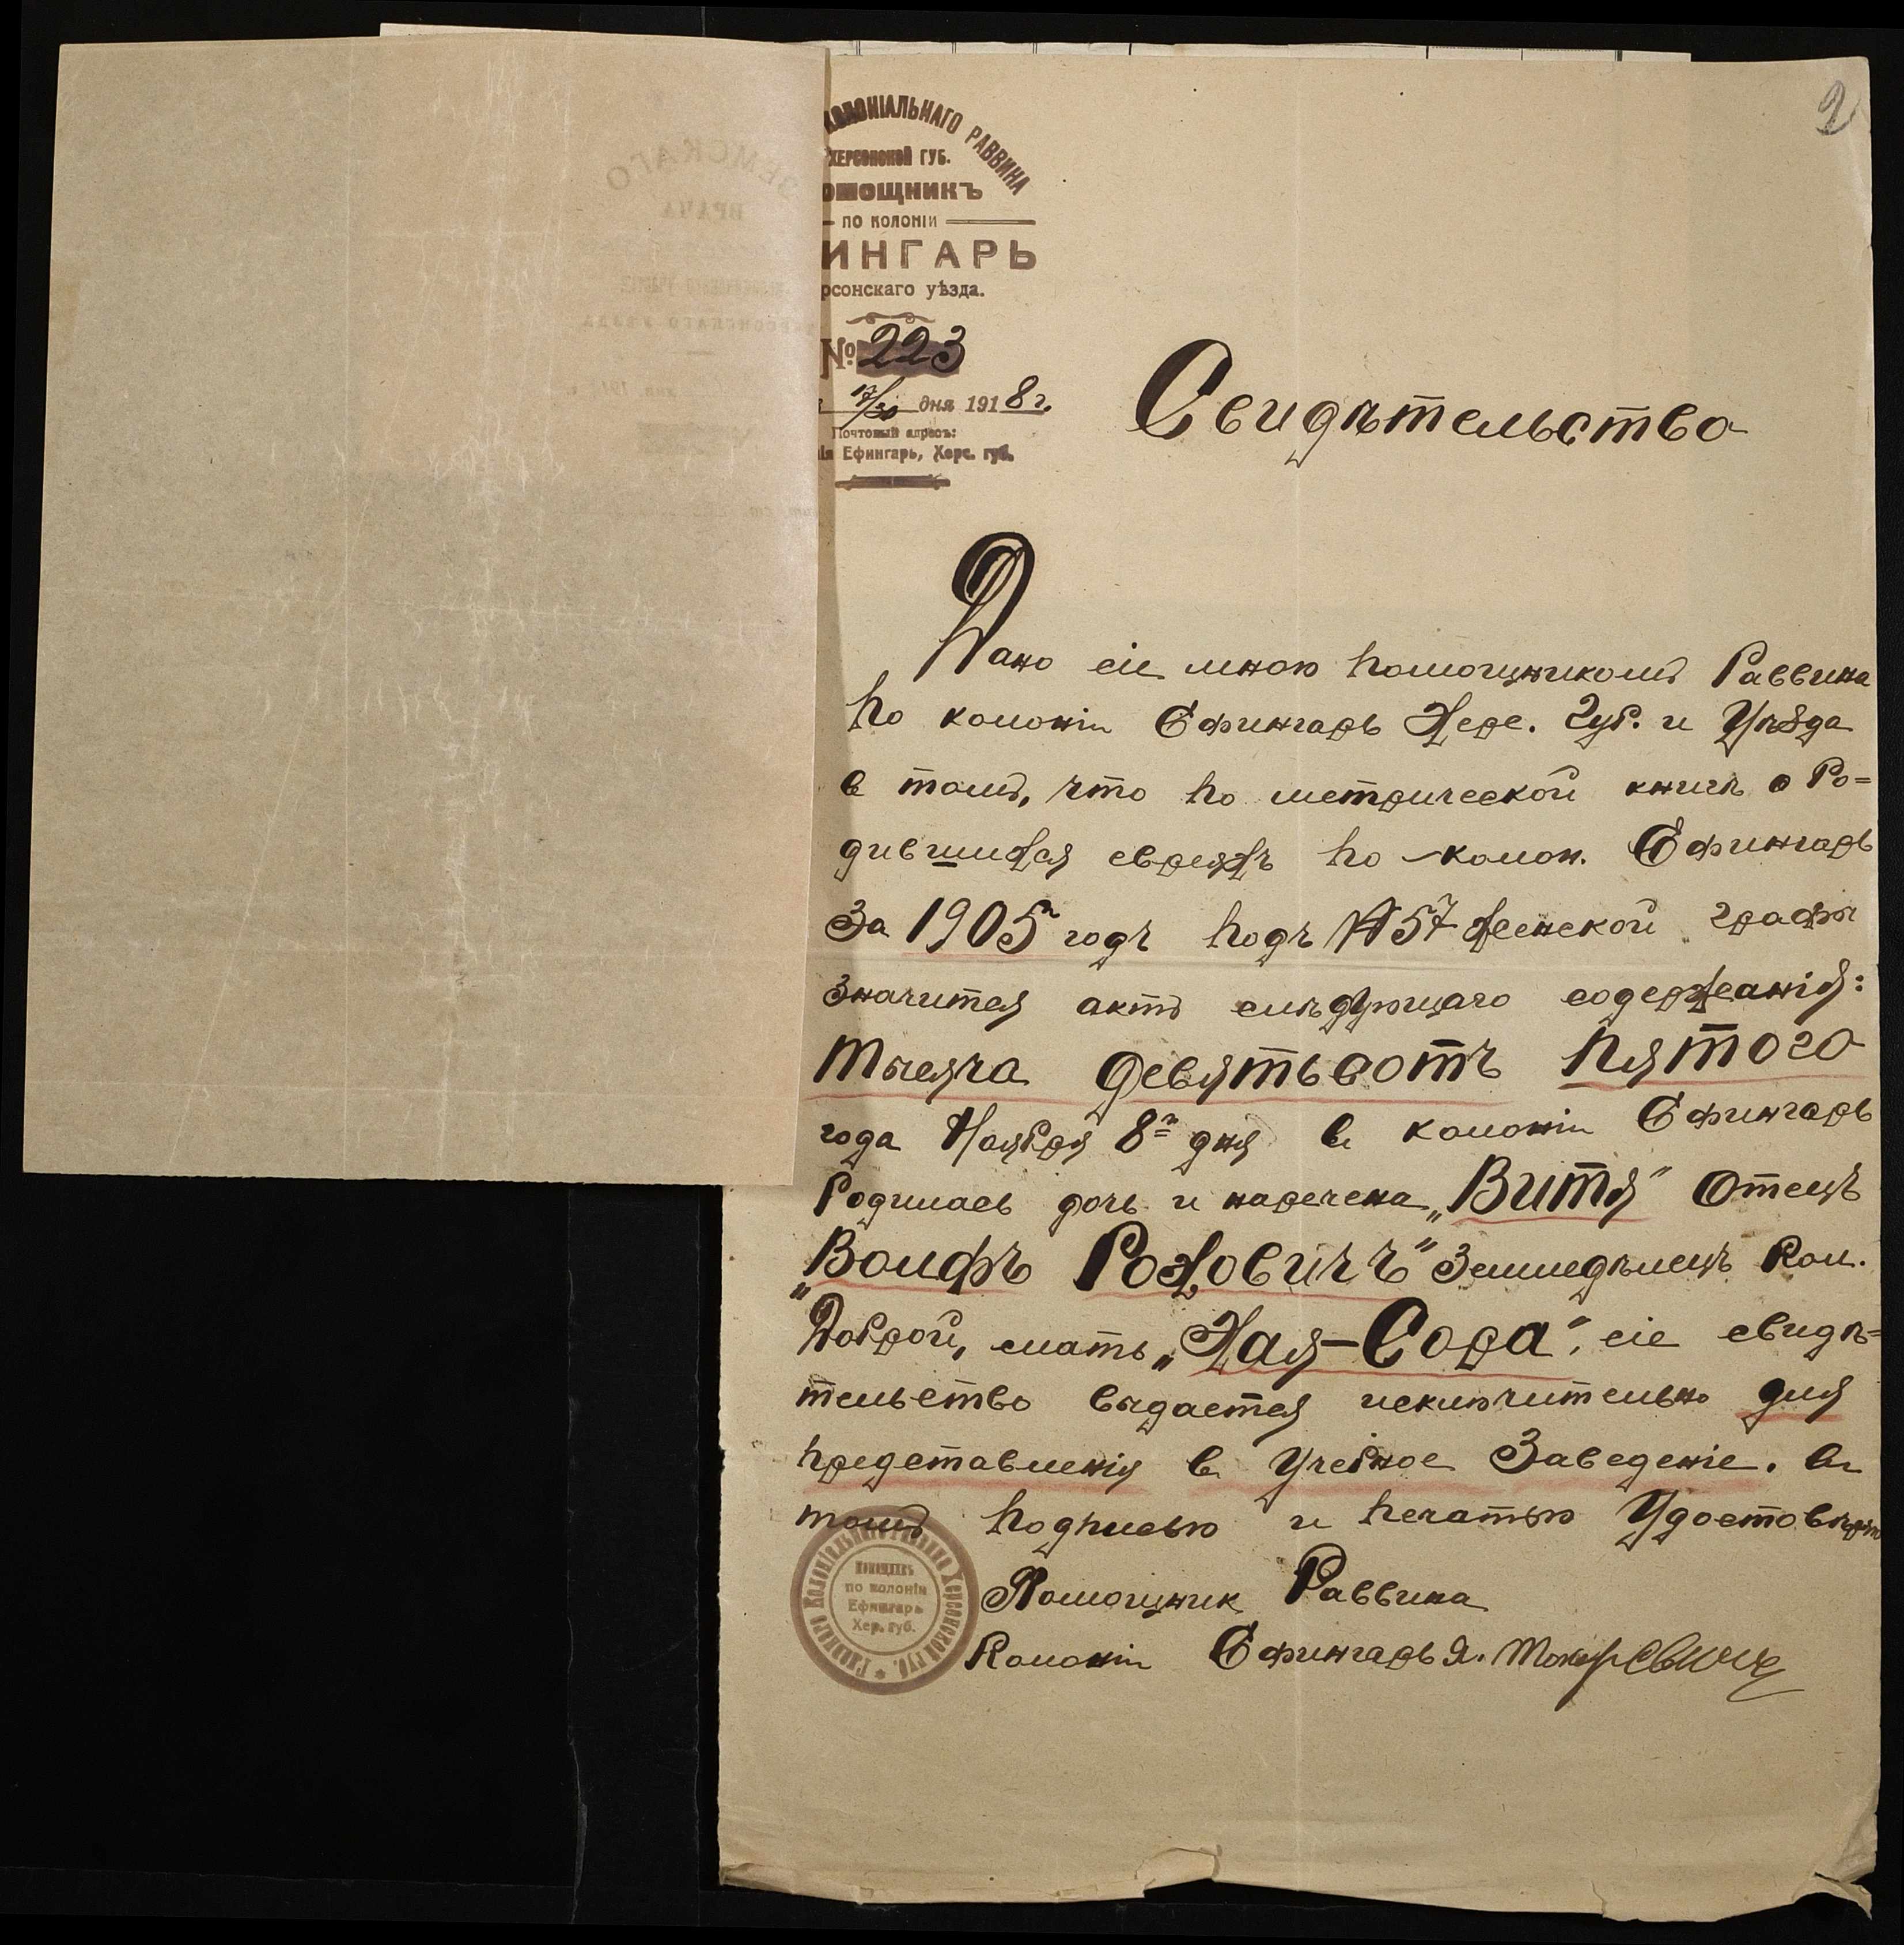 КОЛОНІАЛЬНАГО РАВВИНА
ХЕРСОНСКОЙ ГУБ.
ОМОЩНИКЪ
ПО КОЛОНІИ
ИНГАРЬ
рсонскаго уѣзда.
№ 223
17/30 дня 1918 г.
Почтовый адресъ:
ія Ефингарь, Херс. губ.
2
Свидѣтельство
Дано сіе мною помощникомъ Раввина
по колоніи Ефингарь Херс. Губ. и Уѣзда
в томъ, что по метрической книгѣ о Ро=
дившихся евреяхъ по колон. Ефингарь
За 1905 годъ подъ № 57 Женской графы
значится актъ слѣдующаго содержанія:
тысяча девятьсотъ пятого
года Ноября 8го дня в колоніи Ефингарь
Родилась дочь и наречена „Витя" Отецъ
„Вольфъ Рохович"ъ" Земледѣлецъ Кол.
Доброй, мать „Хая-Сора", сіе свидѣ=
тельство выдается исключительно для
представленія в Учебное Заведеніе. В
томъ подписью и печатью Удостовѣряю
Помощник Раввина
Колоніи Ефингарь Я.
Помощникъ
по колоніи
Ефингарь
Хер. губ.
Колоніальнаго Раввина Херсонской губ.
ЗЕМСКАГО
ВРАЧА